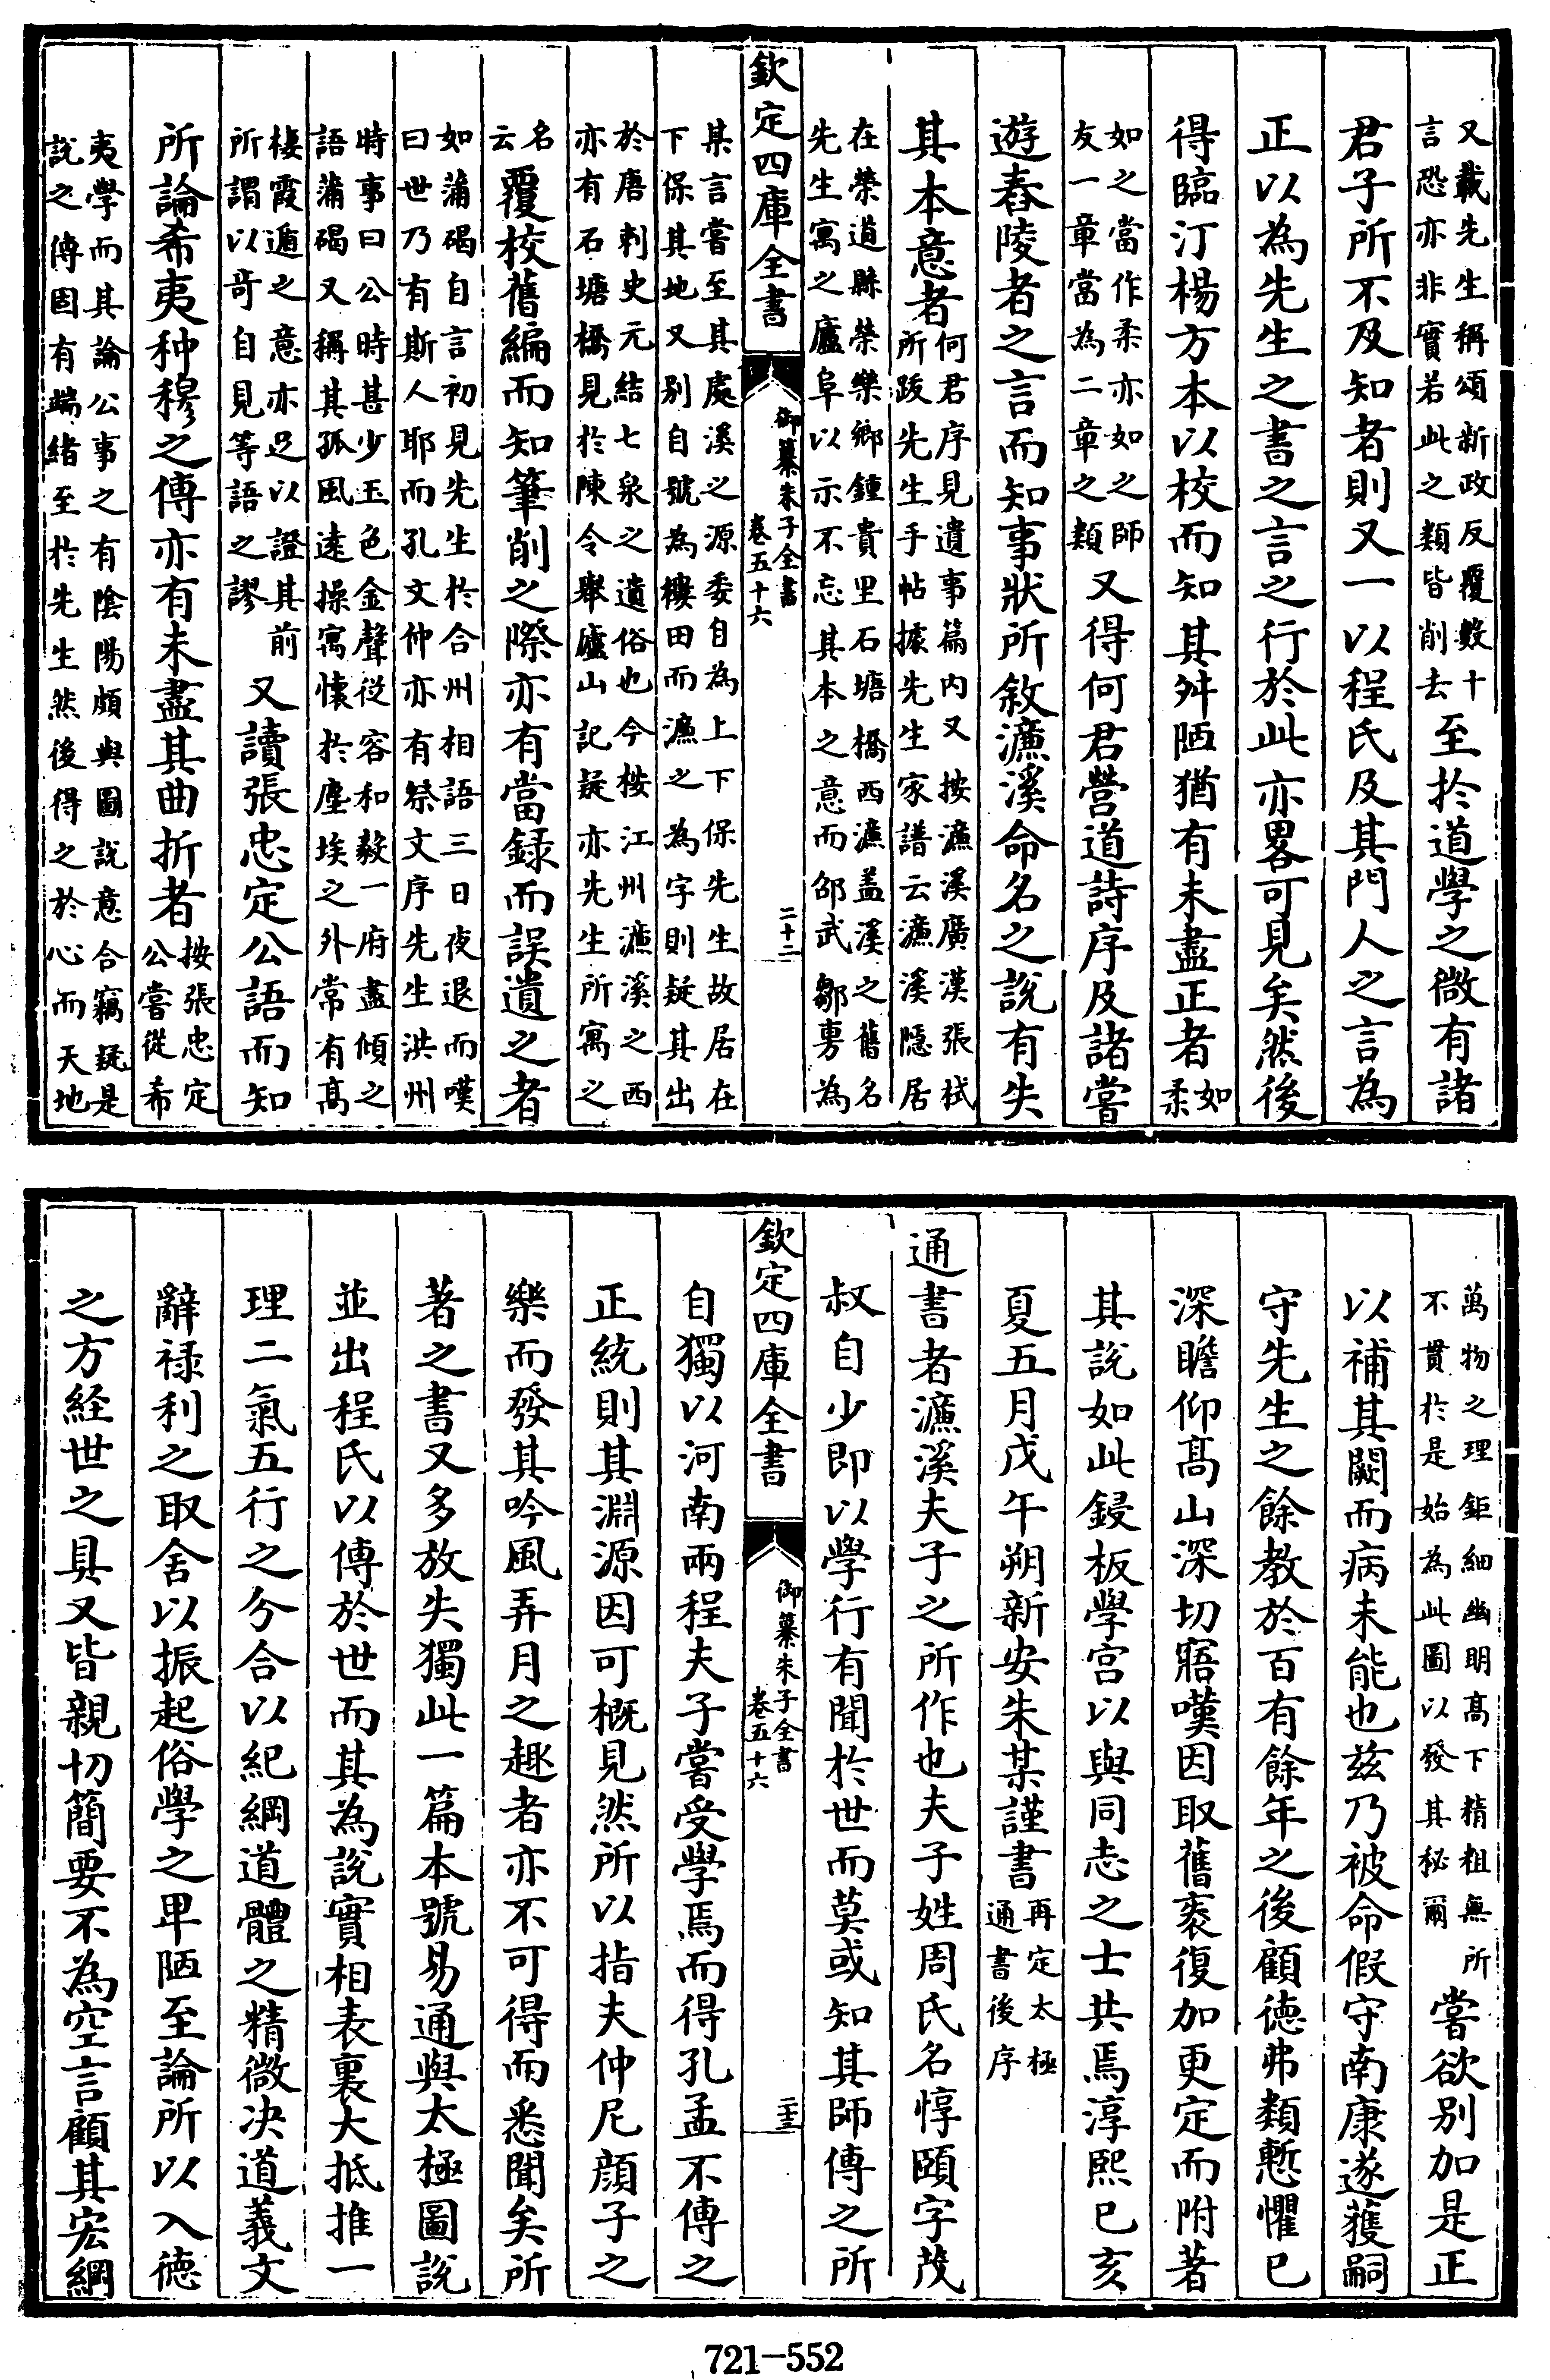 又載先生稱頌新政反覆數十言恐亦非實若此之類皆削去至於道學之微有諸
君子所不及知者則又一以程氏及其門人之言為
正以為先生之書之言之行於此亦畧可見矣然後
得臨汀楊方本以校而知其舛陋猶有未盡正者如柔
如之當作柔亦如之師友一章當為二章之類又得何君營道詩序及諸嘗
遊舂陵者之言而知事狀所敘濂溪命名之說有失
其本意者何君序見遺事篇内又按濂溪廣漢張栻所跋先生手帖據先生家譜云濂溪隱居
在榮道縣榮樂鄉鍾貴里石塘橋西濂盖溪之舊名先生寓之廬阜以示不忘其本之意而邵武鄒旉為
欽定四庫全書 御纂朱子全書 卷五十六 二十二
某言嘗至其處溪之源委自為上下保先生故居在下保其地又别自號為樓田而濂之為字則疑其出
於唐刺史元結七泉之遺俗也今桉江州濂溪之西亦有石塘橋見於陳令舉廬山記疑亦先生所寓之
名云覆校舊編而知筆削之際亦有當録而誤遺之者
如蒲碣自言初見先生於合州相語三日夜退而嘆曰世乃有斯人耶而孔文仲亦有祭文序先生洪州
時事曰公時甚少玉色金聲從容和毅一府盡傾之語蒲碣又稱其孤風遠操寓懷於塵埃之外常有高
棲霞遁之意亦足以證其前所謂以奇自見等語之謬又讀張忠定公語而知
所論希夷种穆之傳亦有未盡其曲折者按張忠定公嘗從希
夷學而其論公事之有陰陽頗與圖說意合竊疑是說之傳固有端緒至於先生然後得之於心而天地
萬物之理鉅細幽明高下精粗無所不貫於是始為此圖以發其秘爾嘗欲别加是正
以補其闕而病未能也兹乃被命假守南康遂獲嗣
守先生之餘教於百有餘年之後顧德弗類慙懼已
深瞻仰高山深切寤嘆因取舊袠復加更定而附著
其說如此鋟板學宫以與同志之士共焉淳熙已亥
夏五月戊午朔新安朱某謹書再定太極通書後序
通書者濂溪夫子之所作也夫子姓周氏名惇頤字茂
叔自少即以學行有聞於世而莫或知其師傳之所
欽定四庫全書 御纂朱子全書 卷五十六 二十三
自獨以河南兩程夫子嘗受學焉而得孔孟不傳之
正統則其淵源因可槪見然所以指夫仲尼顔子之
樂而發其吟風弄月之趣者亦不可得而悉聞矣所
著之書又多放失獨此一篇本號易通與太極圖說
並出程氏以傳於世而其為說實相表裏大抵推一
理二氣五行之分合以紀綱道體之精微决道義文
辭禄利之取舍以振起俗學之卑陋至論所以入德
之方経世之具又皆親切簡要不為空言顧其宏綱
721-552